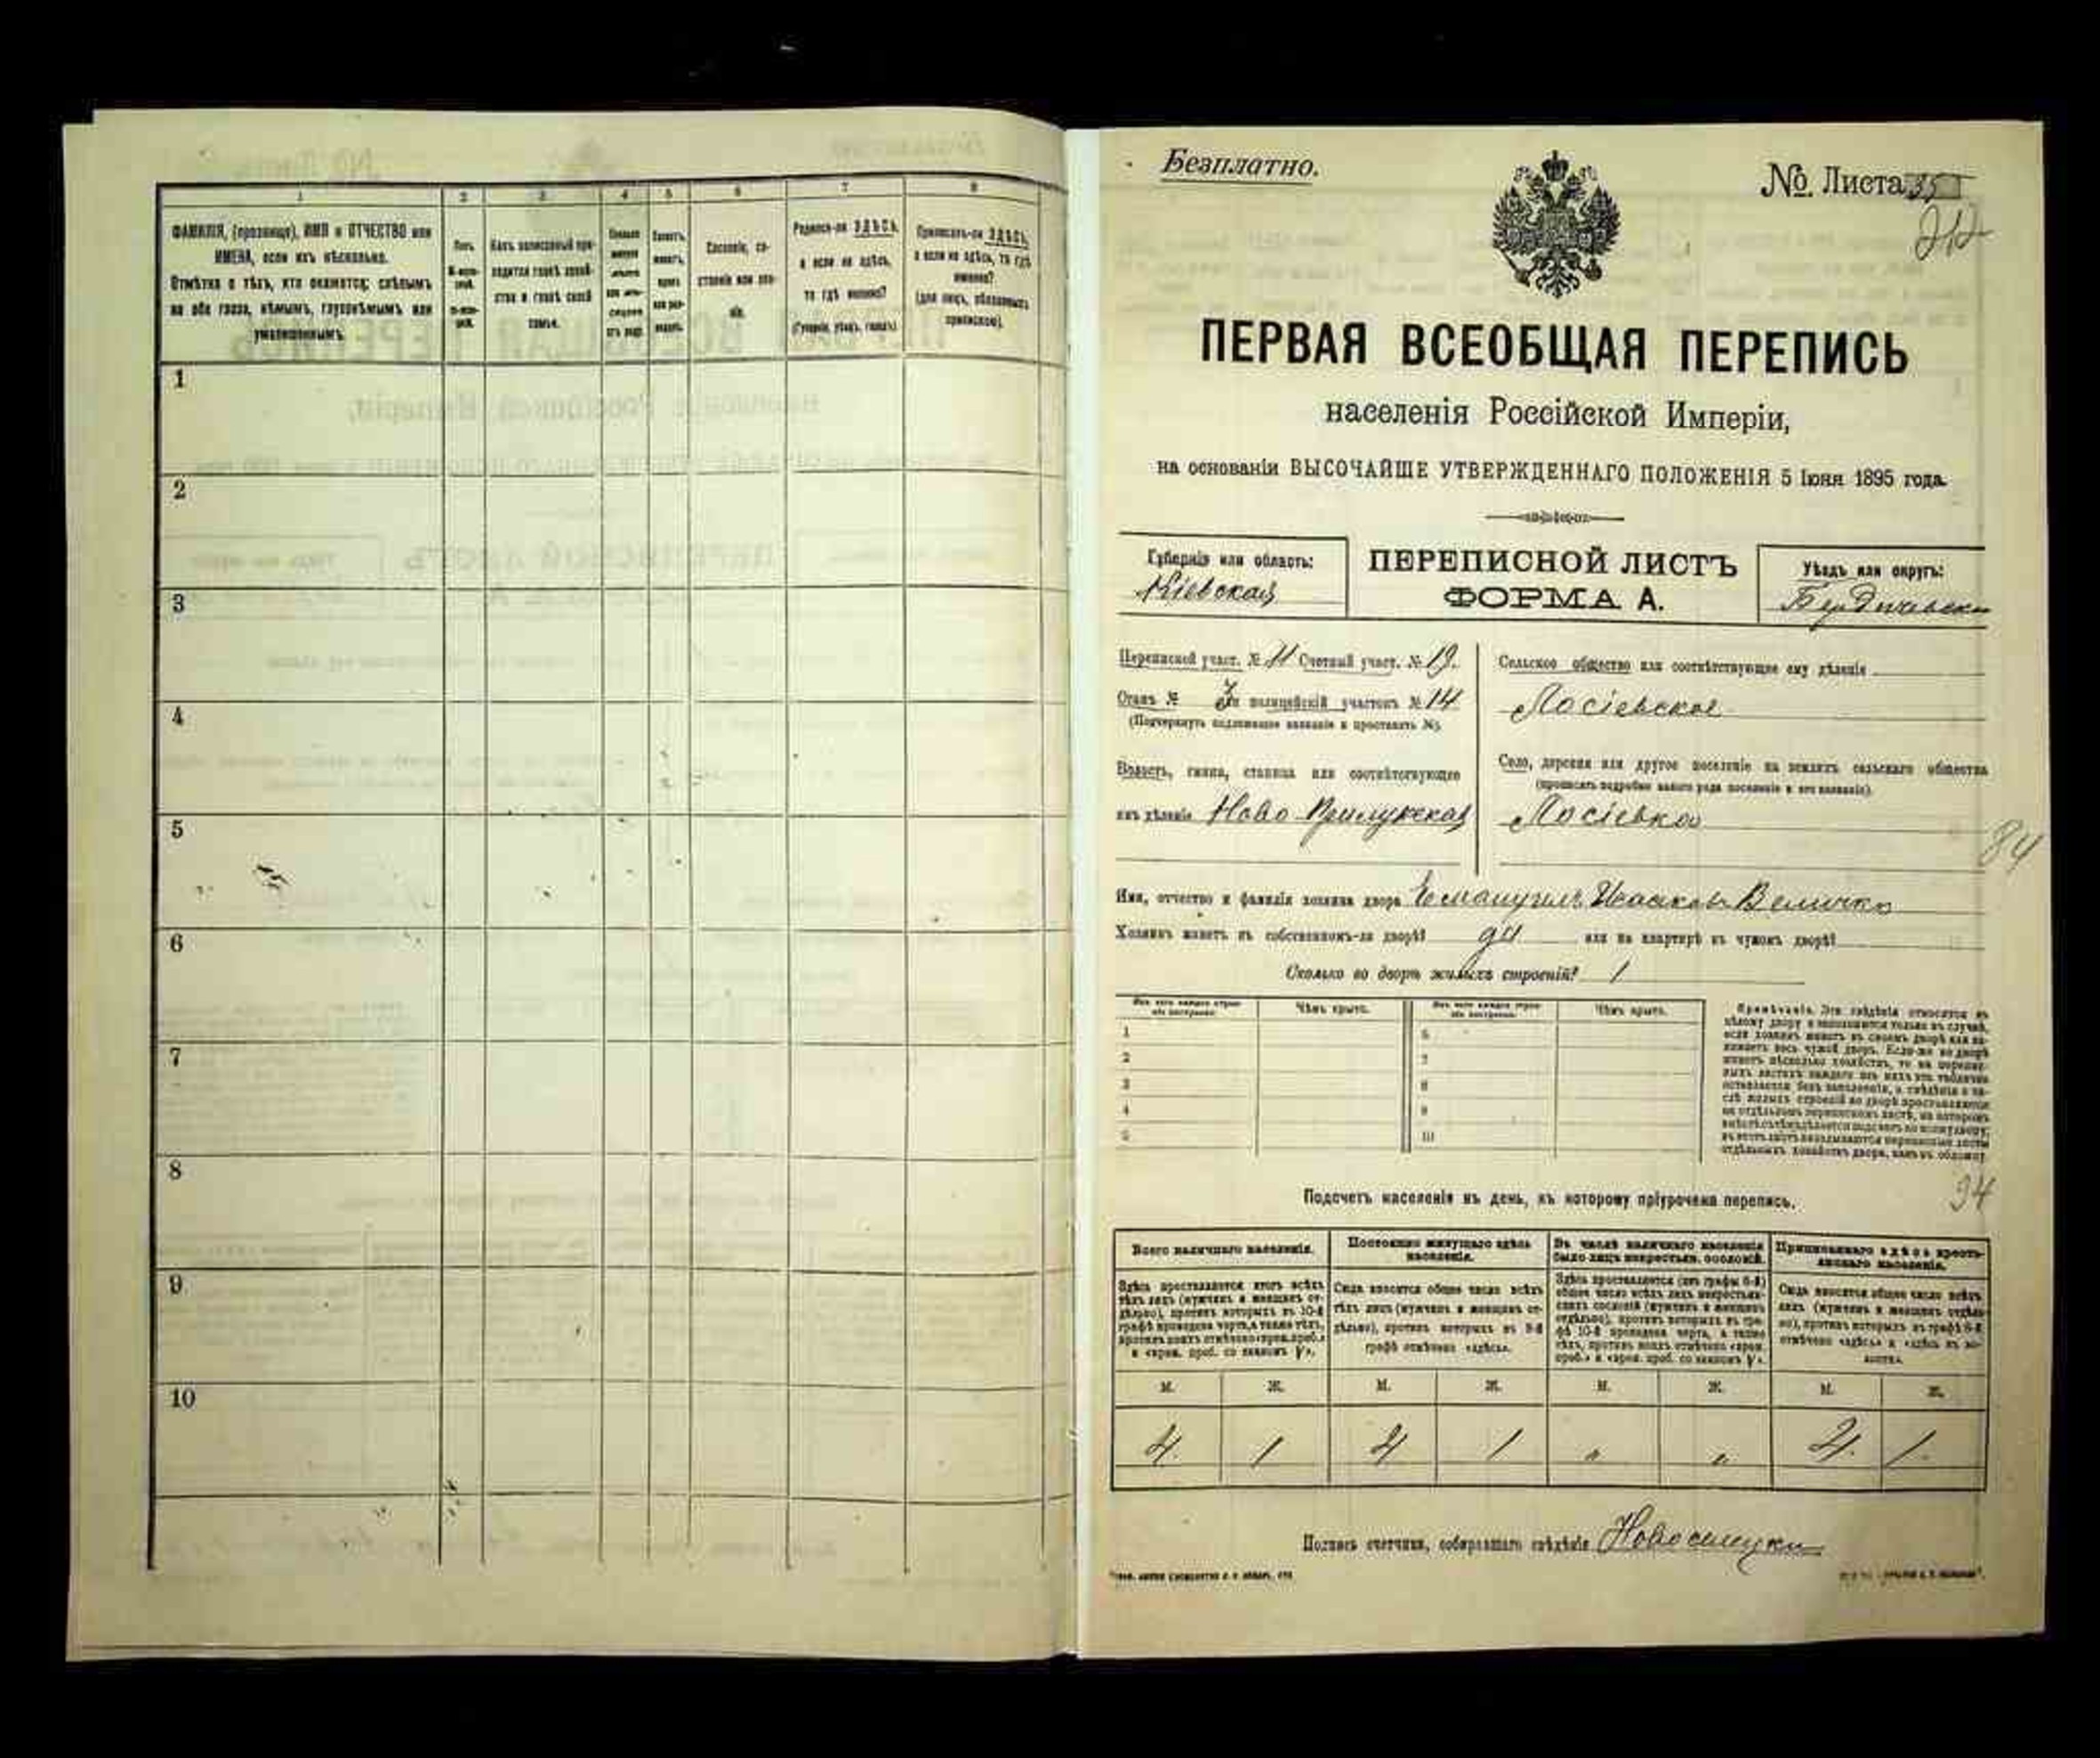 1 2 3 4 5 6 7 8
ФАМИЛІЯ, (прозвище), ИМЯ и ОТЧЕСТВО или
ИМЕНА, если ихъ нѣсколько.
Отмѣтка о тѣхъ, кто окажется; слѣпымъ
на оба глаза, нѣмымъ, глухонѣмымъ или
умалишеннымъ.
Полъ.
Какъ записанный при-
ходится главѣ хозяй-
ства и главѣ своей
семьи.
Сословіе, со-
стояніе или зва-
ніе.
Родился-ли ЗДѢСЬ,
а если не здѣсь,
то гдѣ именно?
(Губернія, уѣздъ, городъ)
Приписанъ-ли ЗДѢСЬ,
а если не здѣсь, то гдѣ
именно?
(для лицъ, обязанныхъ
припискою).
1
2
3
4
5
6
7
8
9
10
Безплатно.
№ Листа 35
ПЕРВАЯ ВСЕОБЩАЯ ПЕРЕПИСЬ
населенія Россійской Имперіи,
на основаніи ВЫСОЧАЙШЕ УТВЕРЖДЕННАГО ПОЛОЖЕНІЯ 5 Іюня 1895 года.
Губернія или область:
Кіевская
ПЕРЕПИСНОЙ ЛИСТЪ
ФОРМА А.
Уѣздъ или округъ:
Бердичевски
Переписной участ. № 11 Счетный участ. № 19.
Станъ № 3 или полицейскій участокъ № 14
(Подчеркнуть подлежащее названіе и проставить №).
Волость, гмина, станица или соотвѣтствующее
имъ дѣленіе Ново Прилукская
Сельское общество или соотвѣтствующее ему дѣленіе
Лосіевское
Село, деревня или другое поселеніе на земляхъ сельскаго общества
(прописать подробно какого рода поселеніе и его названіе).
Лосіевка
84
Имя, отчество и фамилія хозяина двора Емануилъ Исааковъ Величко
Хозяинъ живетъ въ собственномъ-ли дворѣ? да или на квартирѣ въ чужомъ дворѣ?
Сколько во дворѣ жилыхъ строеній? 1
Изъ чего каждое строе-
ніе построено. Чѣмъ крыто. Изъ чего каждое строе-
ніе построено. Чѣмъ крыто.
1 6
2 7
3 8
4 9
5 10
Примѣчаніе. Эти свѣдѣнія относятся къ
цѣлому двору и заполняются только въ случаѣ,
если хозяинъ живетъ въ своемъ дворѣ или за-
нимаетъ весь чужой дворъ. Если-же во дворѣ
живетъ нѣсколько хозяйствъ, то на перепис-
ныхъ листахъ каждаго изъ нихъ эта табличка
оставляется безъ заполненія, а свѣдѣнія о чи-
слѣ жилыхъ строеній во дворѣ проставляются
на отдѣльномъ переписномъ листѣ, на которомъ
отдѣльныхъ хозяйствъ двора, какъ въ обложку
94
Подсчетъ населенія въ день, къ которому пріурочена перепись.
Всего наличнаго населенія.
Здѣсь проставляется итогъ всѣхъ
тѣхъ лицъ (мужчинъ и женщинъ от-
дѣльно), противъ которыхъ въ 10-й
графѣ проведена черта, а также тѣхъ,
противъ коихъ отмѣчено «врем. проб.»
и «врем. проб. со знакомъ V».
Постоянно живущаго здѣсь
населенія.
Сюда вносится общее число всѣхъ
тѣхъ лицъ (мужчинъ и женщинъ от-
дѣльно), противъ которыхъ въ 9-й
графѣ отмѣчено «здѣсь».
Въ числѣ наличнаго населенія
было лицъ некрестьян. сословій.
Здѣсь проставляется (изъ графы 6-й)
общее число всѣхъ лицъ некрестьян-
скихъ сословій (мужчинъ и женщинъ
отдѣльно), противъ которыхъ въ гра-
фѣ 10-й проведена черта, а также
тѣхъ, противъ коихъ отмѣчено «врем.
проб.» и «врем. проб. со знакомъ V».
Приписаннаго здѣсь кресть-
янскаго населенія.
Сюда вносится общее число всѣхъ
лицъ (мужчинъ и женщинъ отдѣль-
но), противъ которыхъ въ графѣ 8-й
отмѣчено «здѣсь» и «здѣсь въ во-
лости».
М. Ж. М. Ж. М. Ж. М. Ж.
4. 1 4 1 „ „ 4. 1.
Подпись счетчика, собиравшаго свѣдѣнія